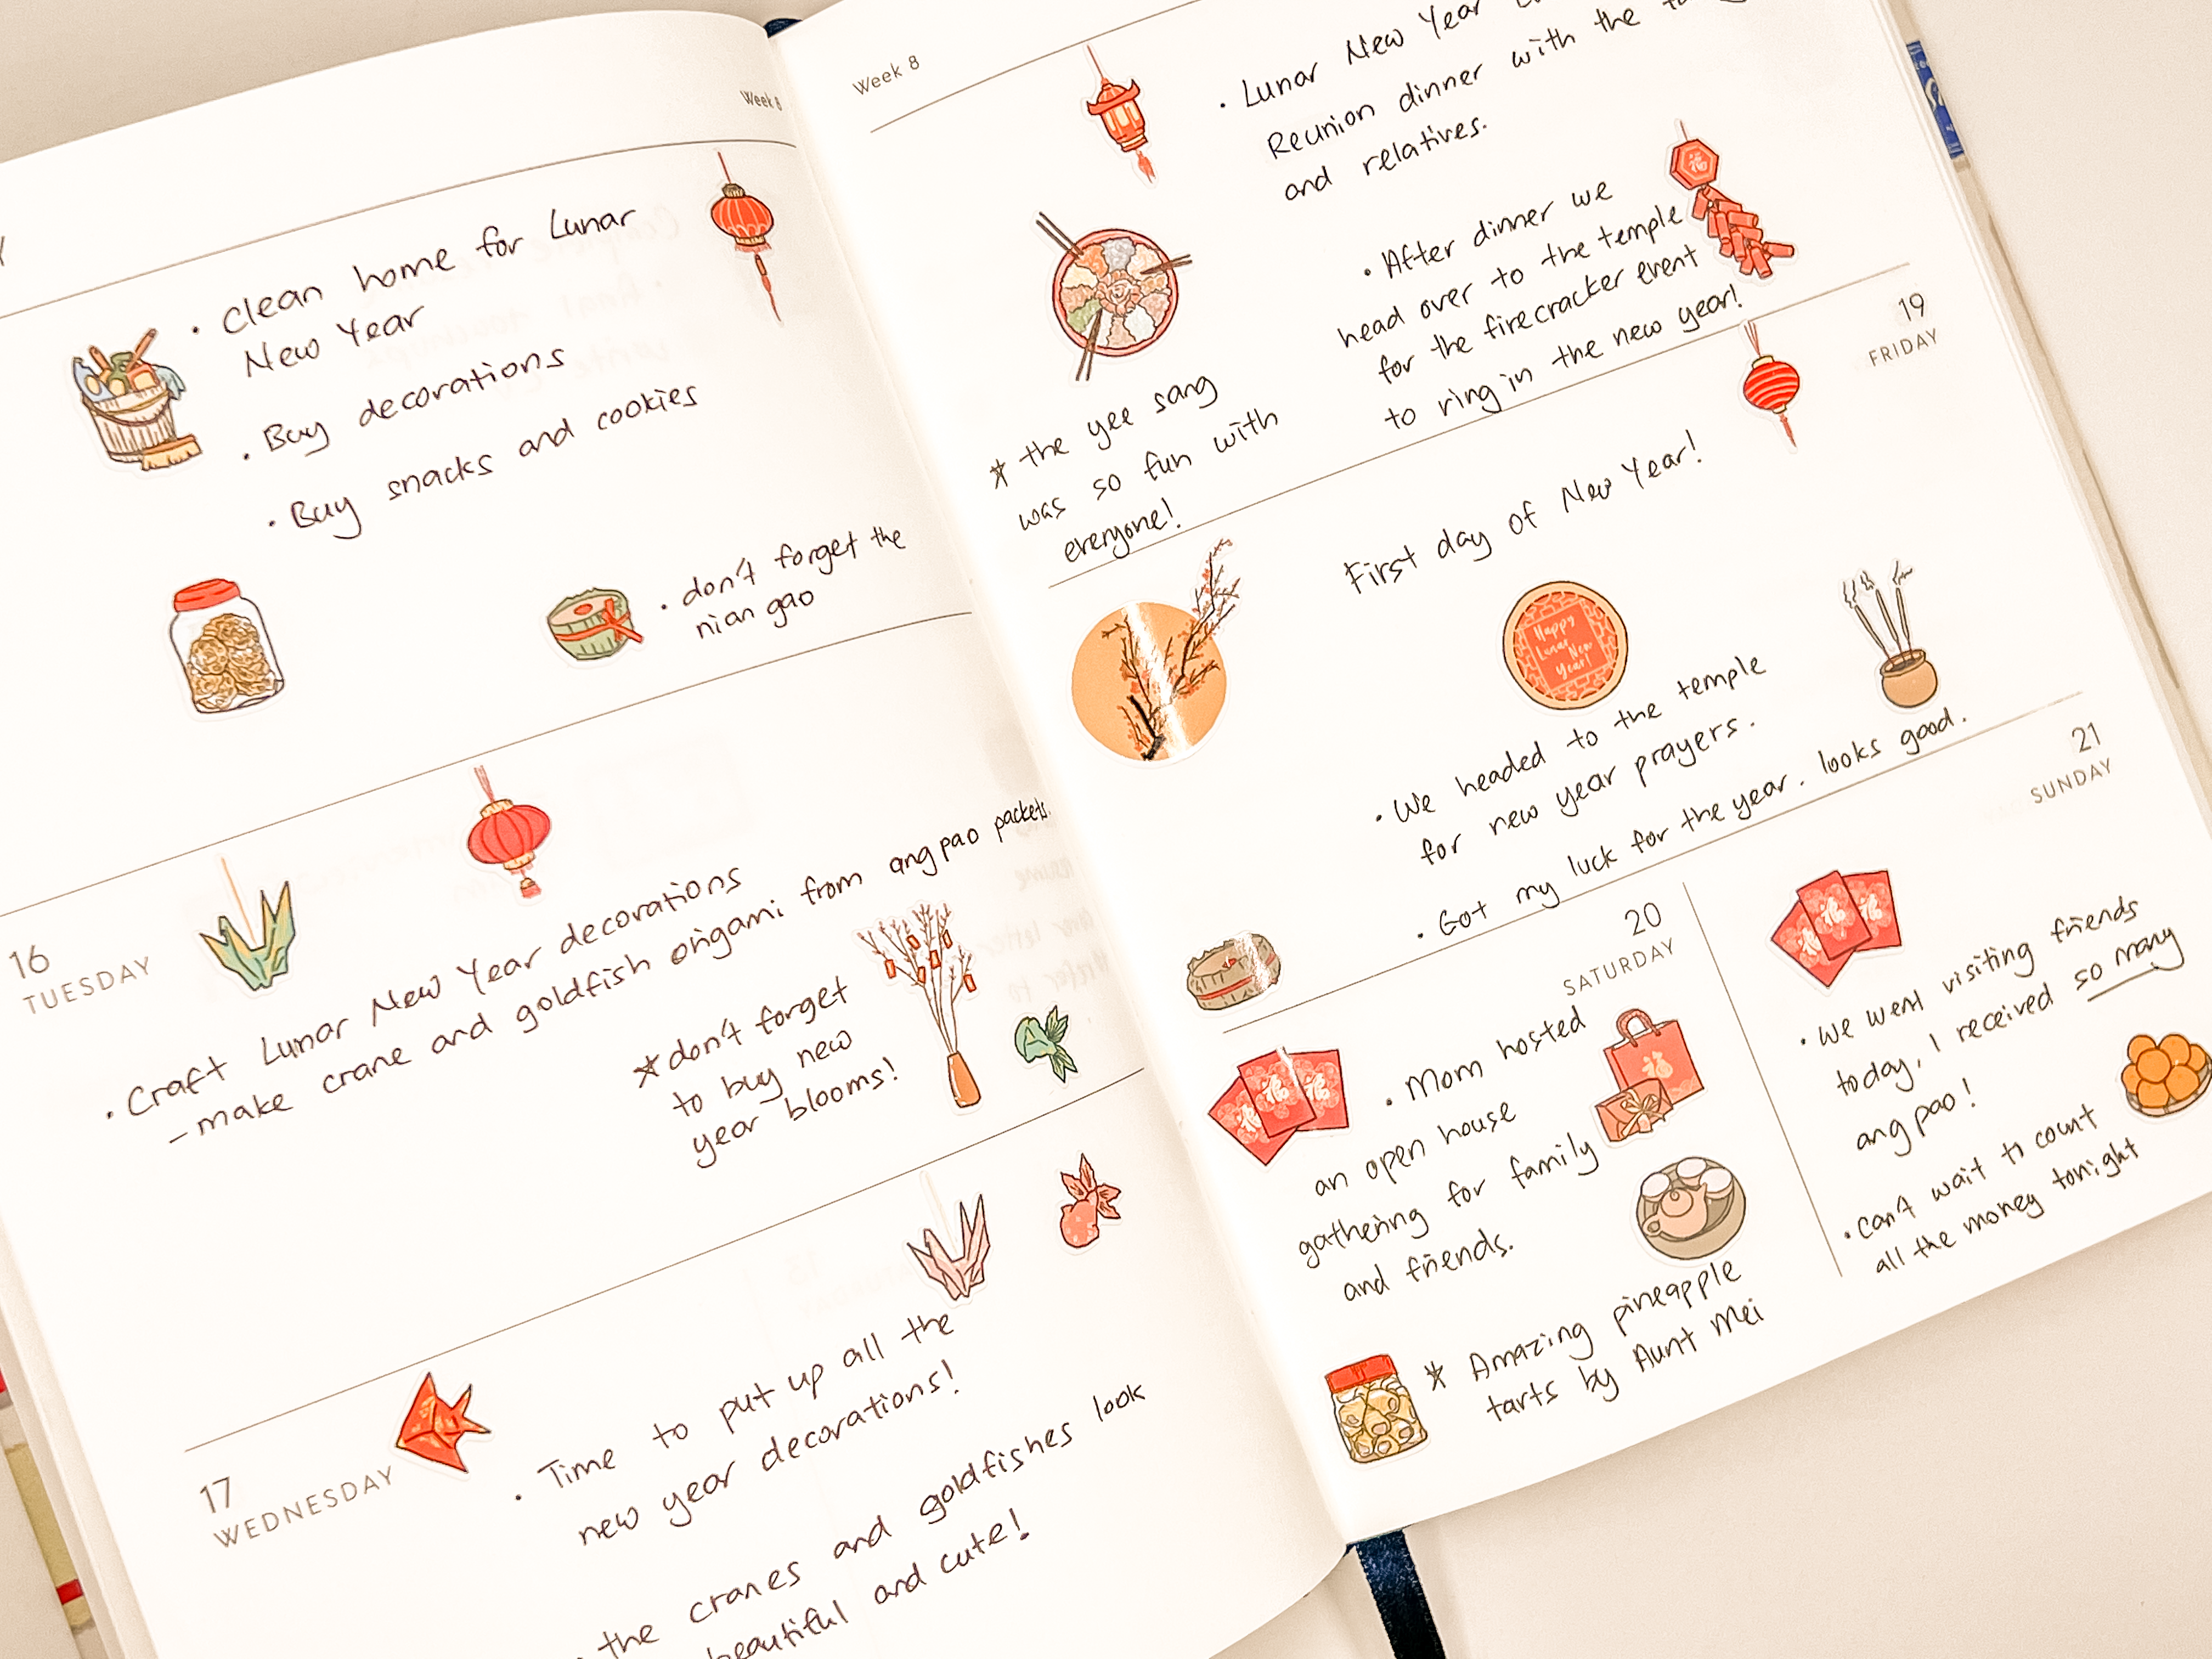 Week 8
• Clean home for Lunar
New Year
• Buy decorations
• Buy snacks and cookies
• don't forget the
nian gao
16
TUESDAY
• Craft Lunar New Year decorations
- make crane and goldfish origami from ang pao packets.
* don't forget
to buy new
year blooms!
17
WEDNESDAY
• Time to put up all the
new year decorations!
the cranes and goldfishes look
beautiful and cute!
Week 8
• Lunar New Year
Reunion dinner with the
and relatives.
• After dinner we
head over to the temple
for the firecracker event
to ring in the new year!
* the yee sang
was so fun with
everyone!
福
19
FRIDAY
First day of New Year!
Happy
Lunar New
Year!
• We headed to the temple
for new year prayers.
• Got my luck for the year. looks good.
20
SATURDAY
福
福
福
• Mom hosted
an open house
gathering for family
and friends.
福
* Amazing pineapple
tarts by Aunt Mei
21
SUNDAY
福
福
福
• We went visiting friends
today, I received so many
ang pao!
• can't wait to count
all the money tonight